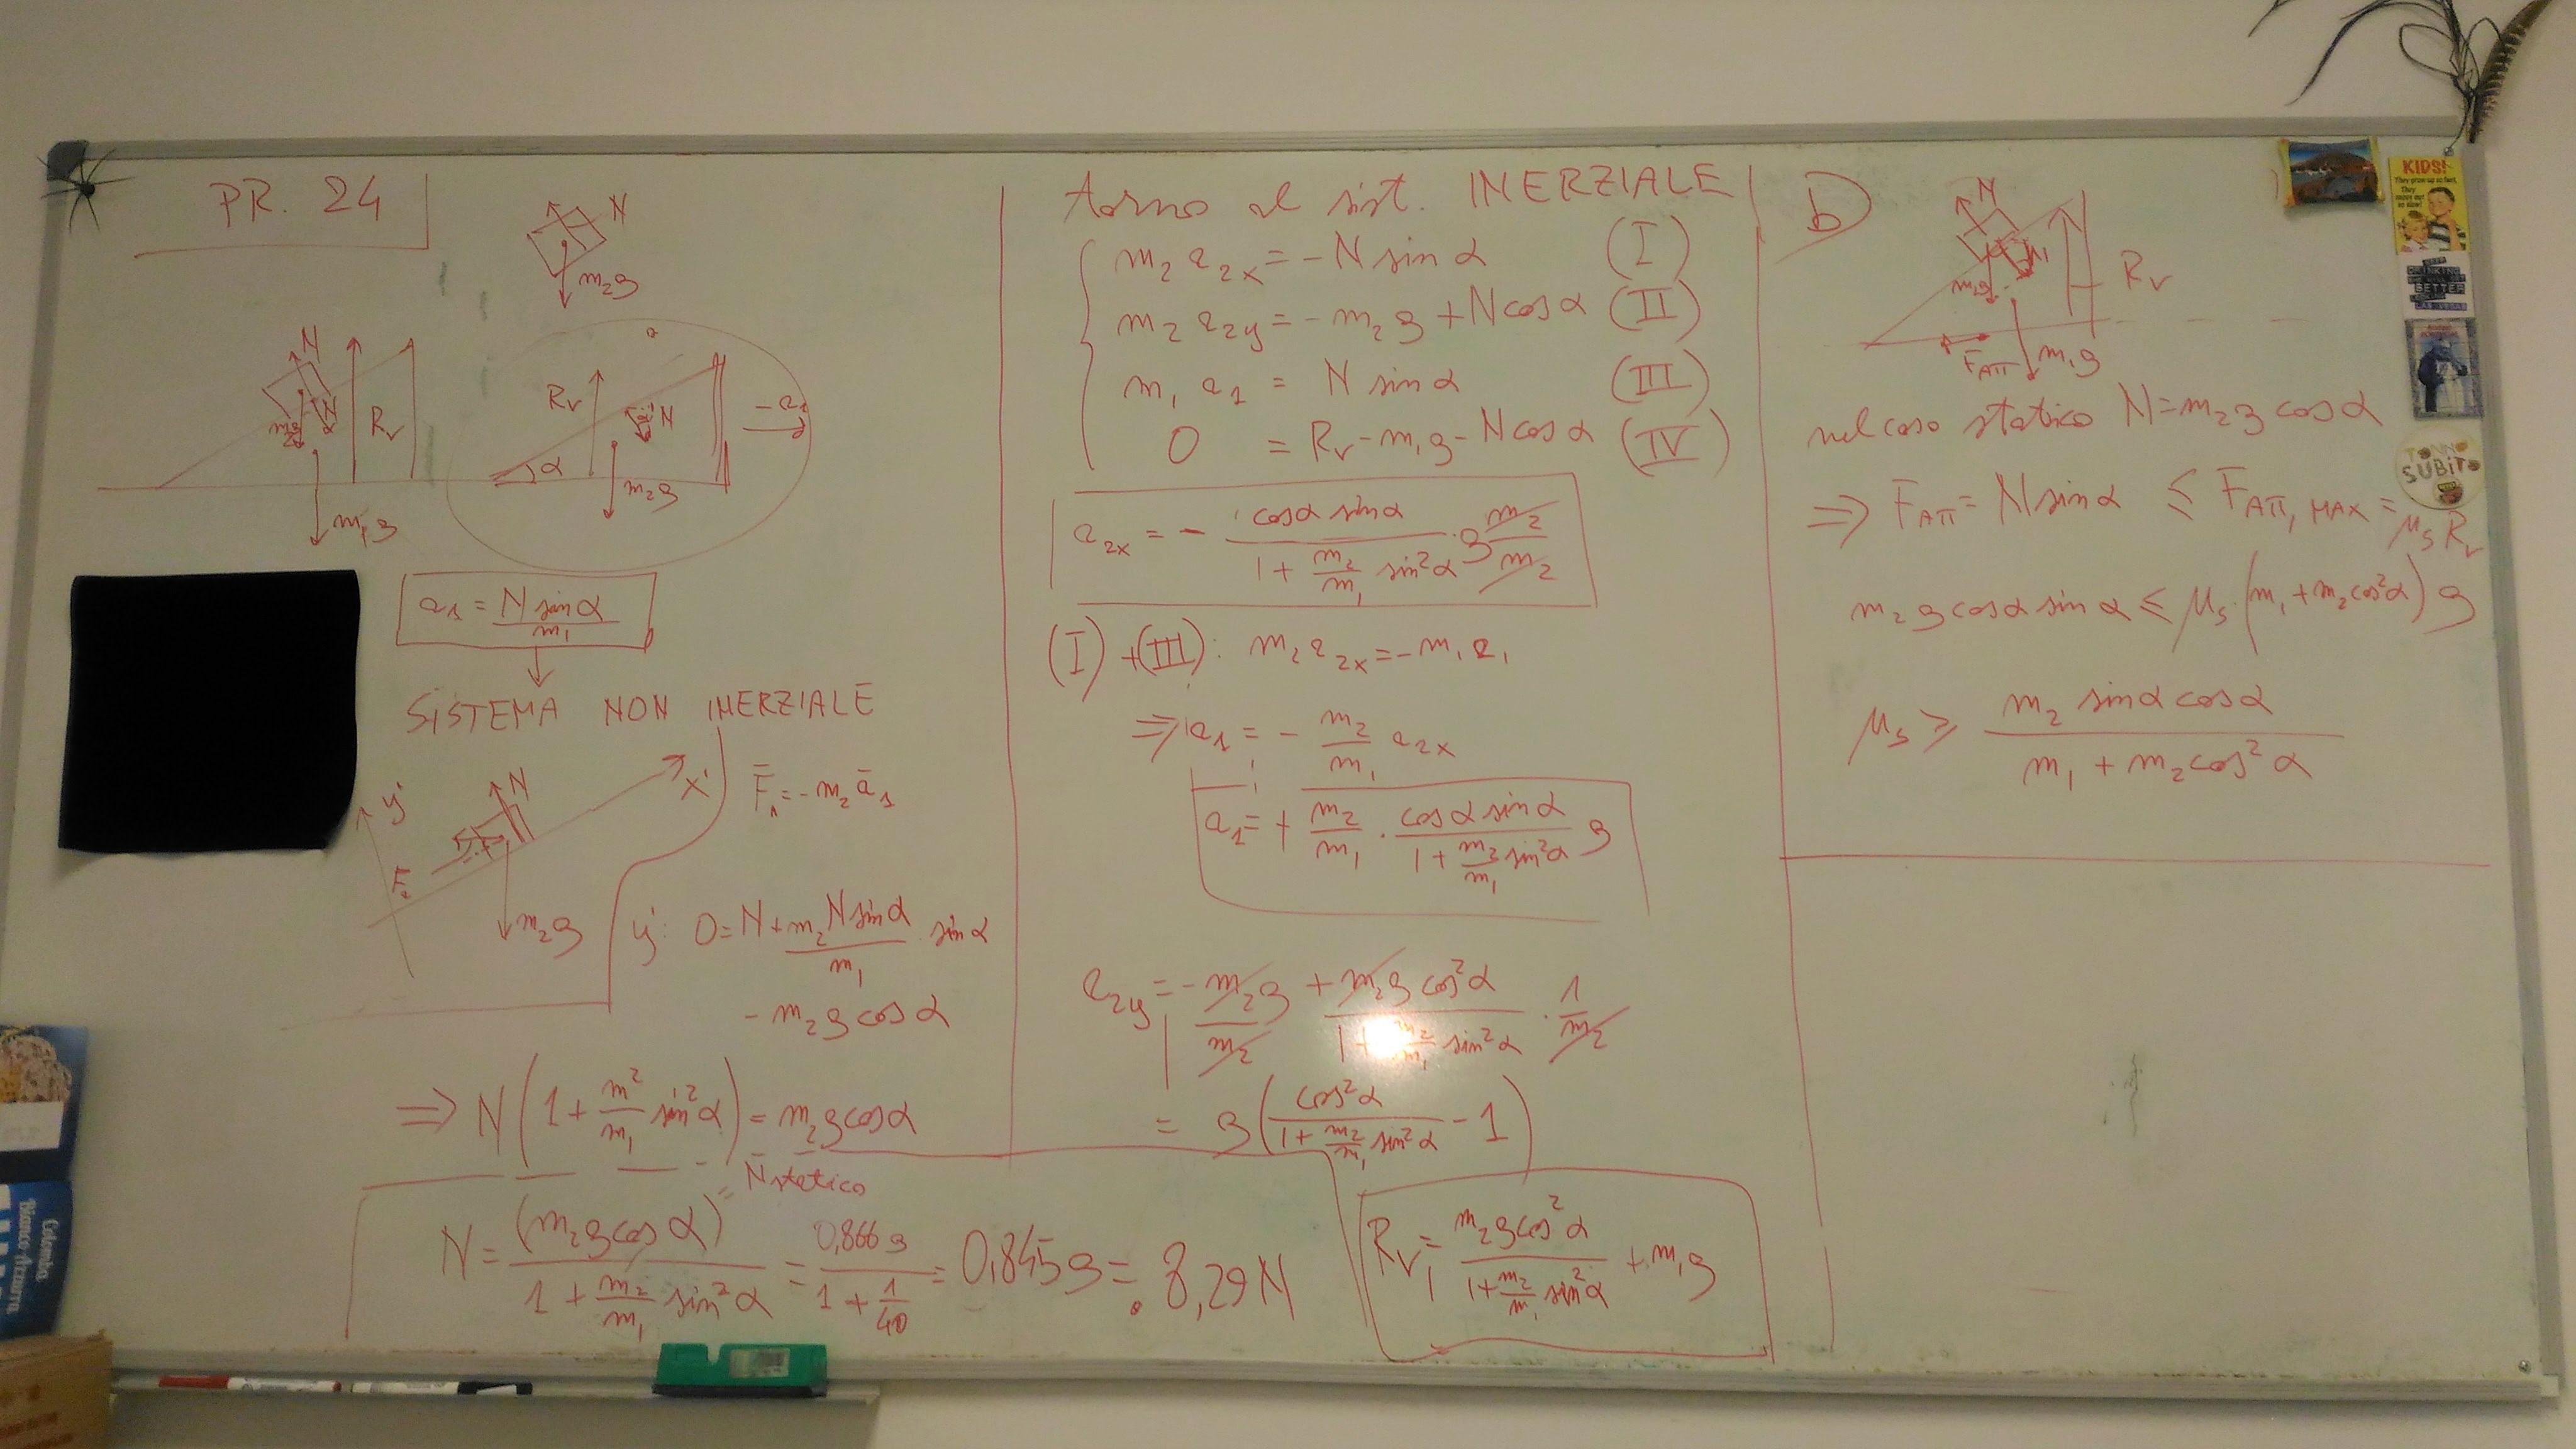 PR. 24
N
m₂g
N
m₂g
N
R_v
m₁g
R_v
N
α
m₂g
-a₁
a₁ = N sin α / m₁
SISTEMA NON INERZIALE
y'
N
x'
m₂g
F̄ₐ = -m₂ ā₁
y': 0 = N + m₂ N sin α / m₁ · sin α
- m₂ g cos α
⇒ N (1 + m²/m₁ sin² α) = m₂ g cos α
= N statico
N = (m₂ g cos α) / (1 + m₂/m₁ sin² α) = 0,866 g / (1 + 1/40) = 0,845 g = 8,29 N
torno al sist. INERZIALE
m₂ a₂ₓ = - N sin α (I)
m₂ a₂y = - m₂ g + N cos α (II)
m₁ a₁ = N sin α (III)
0 = R_v - m₁ g - N cos α (IV)
a₂ₓ = - cos α sin α / (1 + m₂/m₁ sin² α) · g m₂/m₂
(I) + (III): m₂ a₂ₓ = - m₁ a₁
⇒ a₁ = - m₂/m₁ a₂ₓ
a₁ = + m₂/m₁ · cos α sin α / (1 + m₂/m₁ sin² α) g
a₂y = - m₂ g / m₂ + m₂ g cos² α / (1 + m₂/m₁ sin² α) · 1/m₂
= g (cos² α / (1 + m₂/m₁ sin² α) - 1)
R_v = m₂ g cos² α / (1 + m₂/m₁ sin² α) + m₁ g
b)
N
R_v
m₂g
F_ATT
m₁g
nel caso statico N = m₂ g cos α
⇒ F_ATT = N sin α ≤ F_ATT, MAX = μ_s R_v
m₂ g cos α sin α ≤ μ_s · (m₁ + m₂ cos² α) g
μ_s ≥ m₂ sin α cos α / (m₁ + m₂ cos² α)
KIDS!
BETTER
TONNO
SUBITO